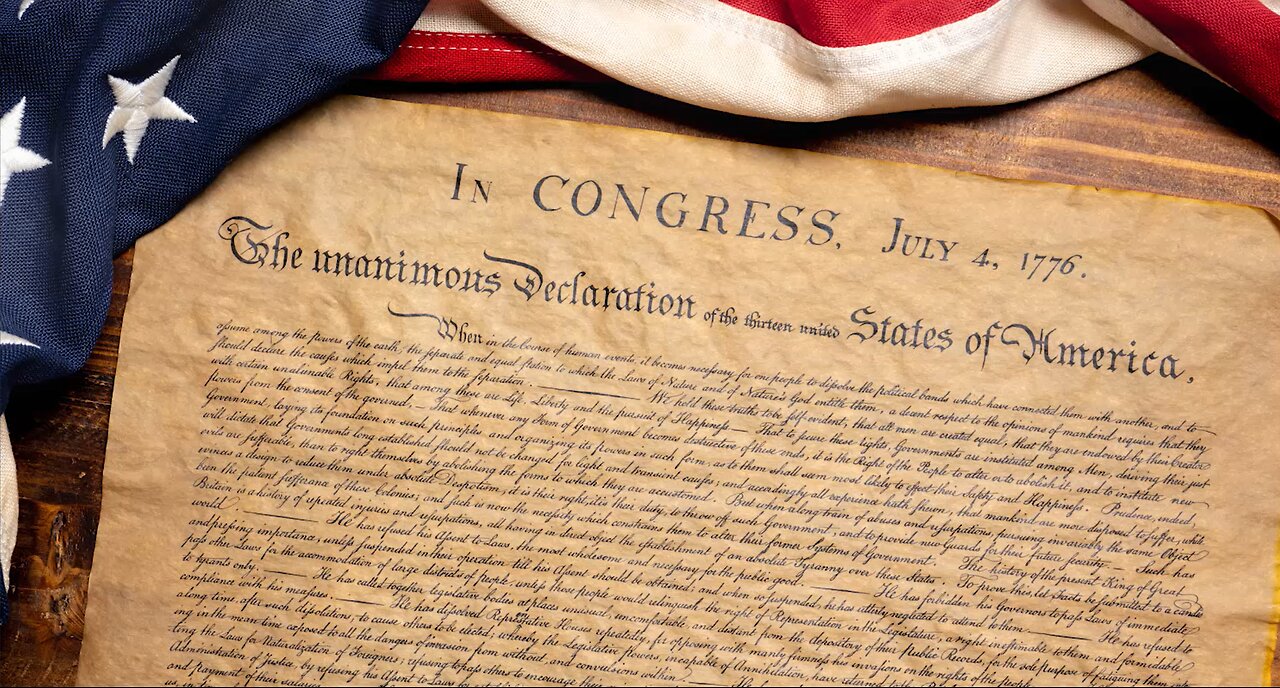 In CONGRESS, July 4, 1776.
The unanimous Declaration of the thirteen united States of America,
When in the Course of human events, it becomes necessary for one people to dissolve the political bands which have connected them with another, and to
assume among the powers of the earth, the separate and equal station to which the Laws of Nature and of Nature's God entitle them, a decent respect to the opinions of mankind requires that they
should declare the causes which impel them to the separation. — We hold these truths to be self-evident, that all men are created equal, that they are endowed by their Creator
with certain unalienable Rights, that among these are Life, Liberty and the pursuit of Happiness — That to secure these rights, Governments are instituted among Men, deriving their just
powers from the consent of the governed, — That whenever any Form of Government becomes destructive of these ends, it is the Right of the People to alter or to abolish it, and to institute new
Government, laying its foundation on such principles and organizing its powers in such form, as to them shall seem most likely to effect their Safety and Happiness. Prudence, indeed,
will dictate that Governments long established should not be changed for light and transient causes; and accordingly all experience hath shewn, that mankind are more disposed to suffer, while
evils are sufferable, than to right themselves by abolishing the forms to which they are accustomed. But when a long train of abuses and usurpations, pursuing invariably the same Object
evinces a design to reduce them under absolute Despotism, it is their right, it is their duty, to throw off such Government, and to provide new Guards for their future security. — Such has
been the patient sufferance of these Colonies; and such is now the necessity which constrains them to alter their former Systems of Government. The history of the present King of Great
Britain is a history of repeated injuries and usurpations, all having in direct object the establishment of an absolute Tyranny over these States. To prove this, let Facts be submitted to a candid
world. — He has refused his Assent to Laws, the most wholesome and necessary for the public good. — He has forbidden his Governors to pass Laws of immediate
and pressing importance, unless suspended in their operation till his Assent should be obtained; and when so suspended, he has utterly neglected to attend to them. — He has refused to
pass other Laws for the accommodation of large districts of people, unless those people would relinquish the right of Representation in the Legislature, a right inestimable to them and formidable
to tyrants only. — He has called together legislative bodies at places unusual, uncomfortable, and distant from the depository of their public Records, for the sole purpose of fatiguing them into
compliance with his measures. — He has dissolved Representative Houses repeatedly, for opposing with manly firmness his invasions on the rights of the people.
along time, after such dissolutions, to cause others to be elected; whereby the Legislative powers, incapable of Annihilation, have returned
ing in the mean time exposed to all the dangers of invasion from without, and convulsions within.
ting the Laws for Naturalization of Foreigners; refusing to pass others to encourage their
Administration of Justice, by refusing his Assent to Laws for
and payment of their salaries.